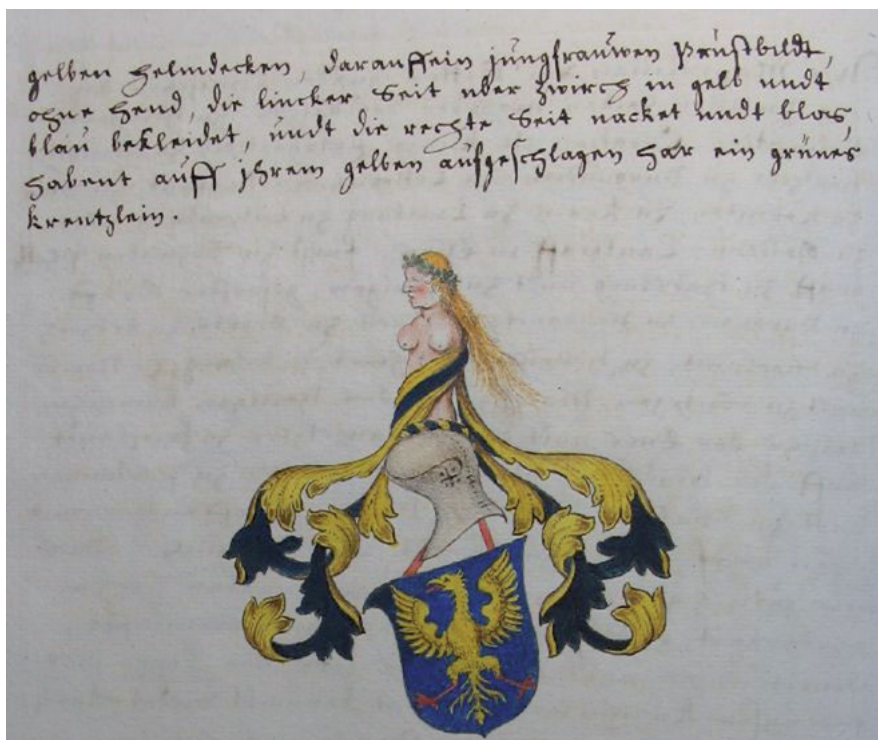 gelben helmdecken, darauff ein jungfrauwen Prustbildt,
ohne hend, die lincker Seit uber zwirch in gelb undt
blau bekleidet, undt die rechte Seit nacket undt blos,
habent auff jhrem gelben aufgeschlagen har ein grünes
krentzlein.